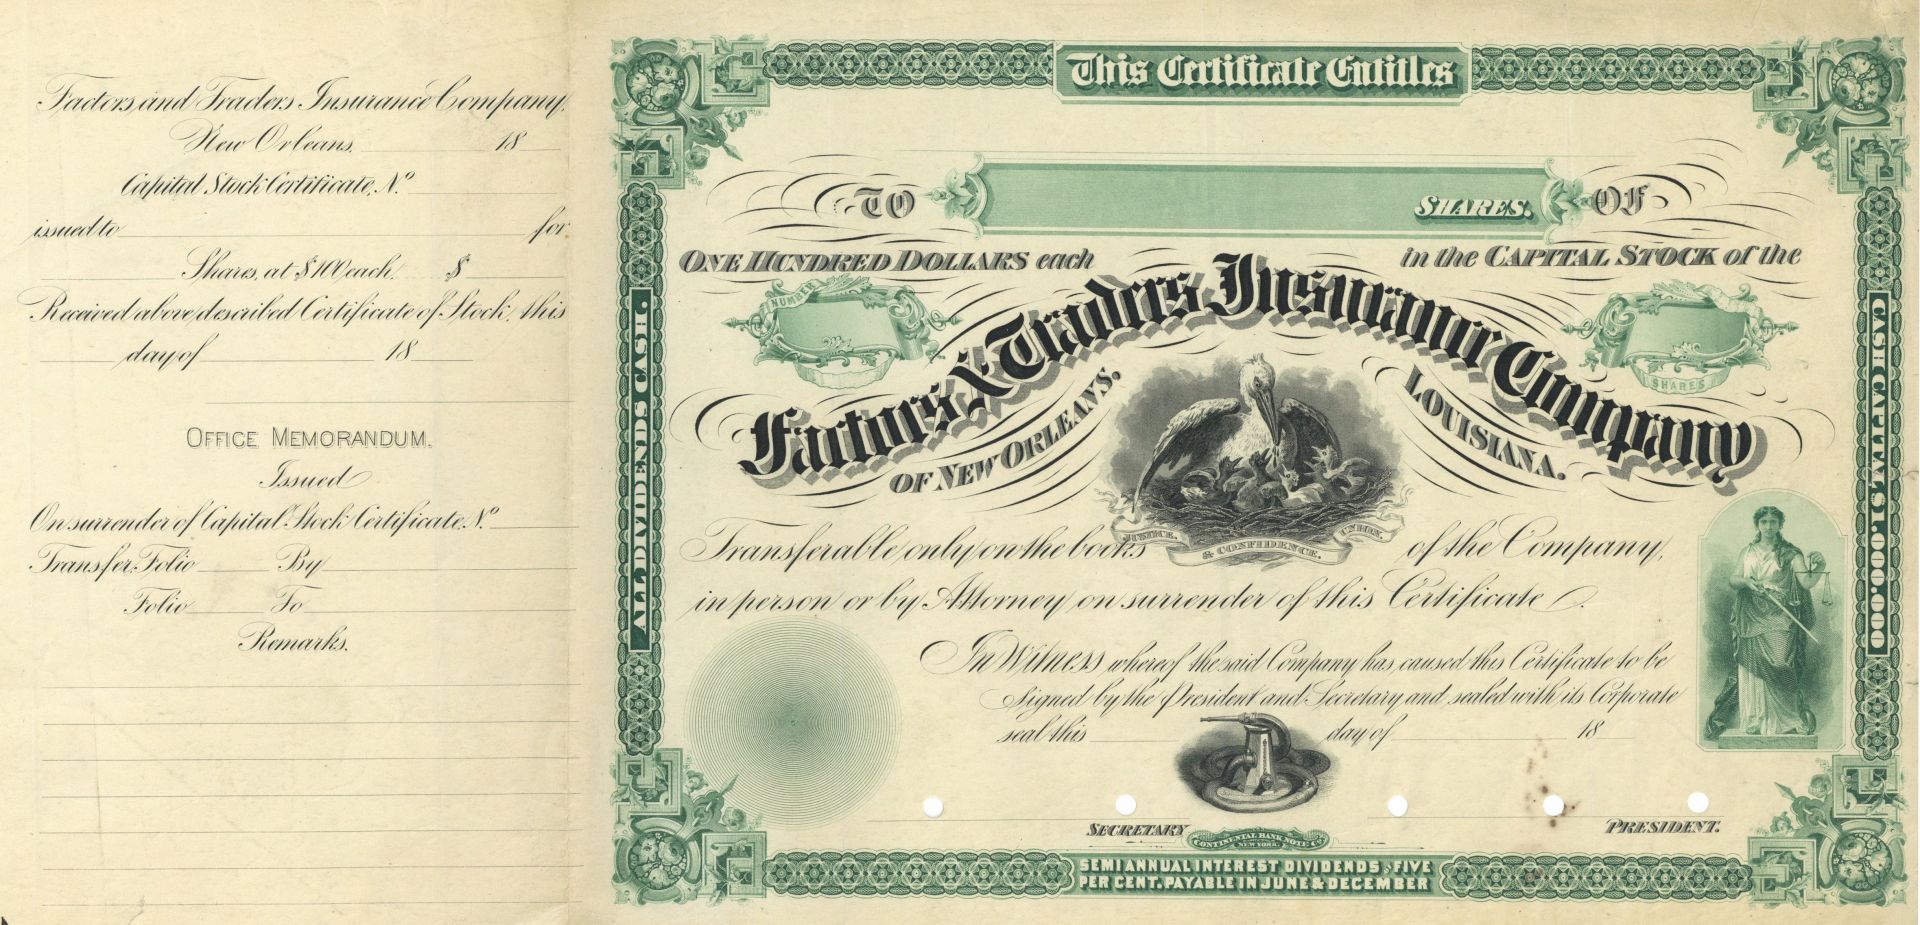 Factors and Traders Insurance Company,
New Orleans, 18
Capital Stock Certificate, No.
issued to for
Shares, at $100 each, $
Received above described Certificate of Stock, this
day of 18
OFFICE MEMORANDUM.
Issued
On surrender of Capital Stock Certificate No.
Transfer, Folio By
Folio To
Remarks.
This Certificate Entitles
TO SHARES, OF
ONE HUNDRED DOLLARS each in the CAPITAL STOCK of the
NUMBER
SHARES
Factors & Traders Insurance Company
OF NEW ORLEANS, LOUISIANA.
JUSTICE, & CONFIDENCE, UNION,
Transferable only on the books of the Company,
in person or by Attorney on surrender of this Certificate.
In Witness whereof the said Company has caused this Certificate to be
Signed by the President and Secretary and sealed with its Corporate
seal this day of 18
SECRETARY PRESIDENT.
CONTINENTAL BANK NOTE Co.
NEW YORK.
SEMI ANNUAL INTEREST DIVIDENDS, FIVE
PER CENT. PAYABLE IN JUNE & DECEMBER
ALL DIVIDENDS CASH.
CASH CAPITAL $1.000.000